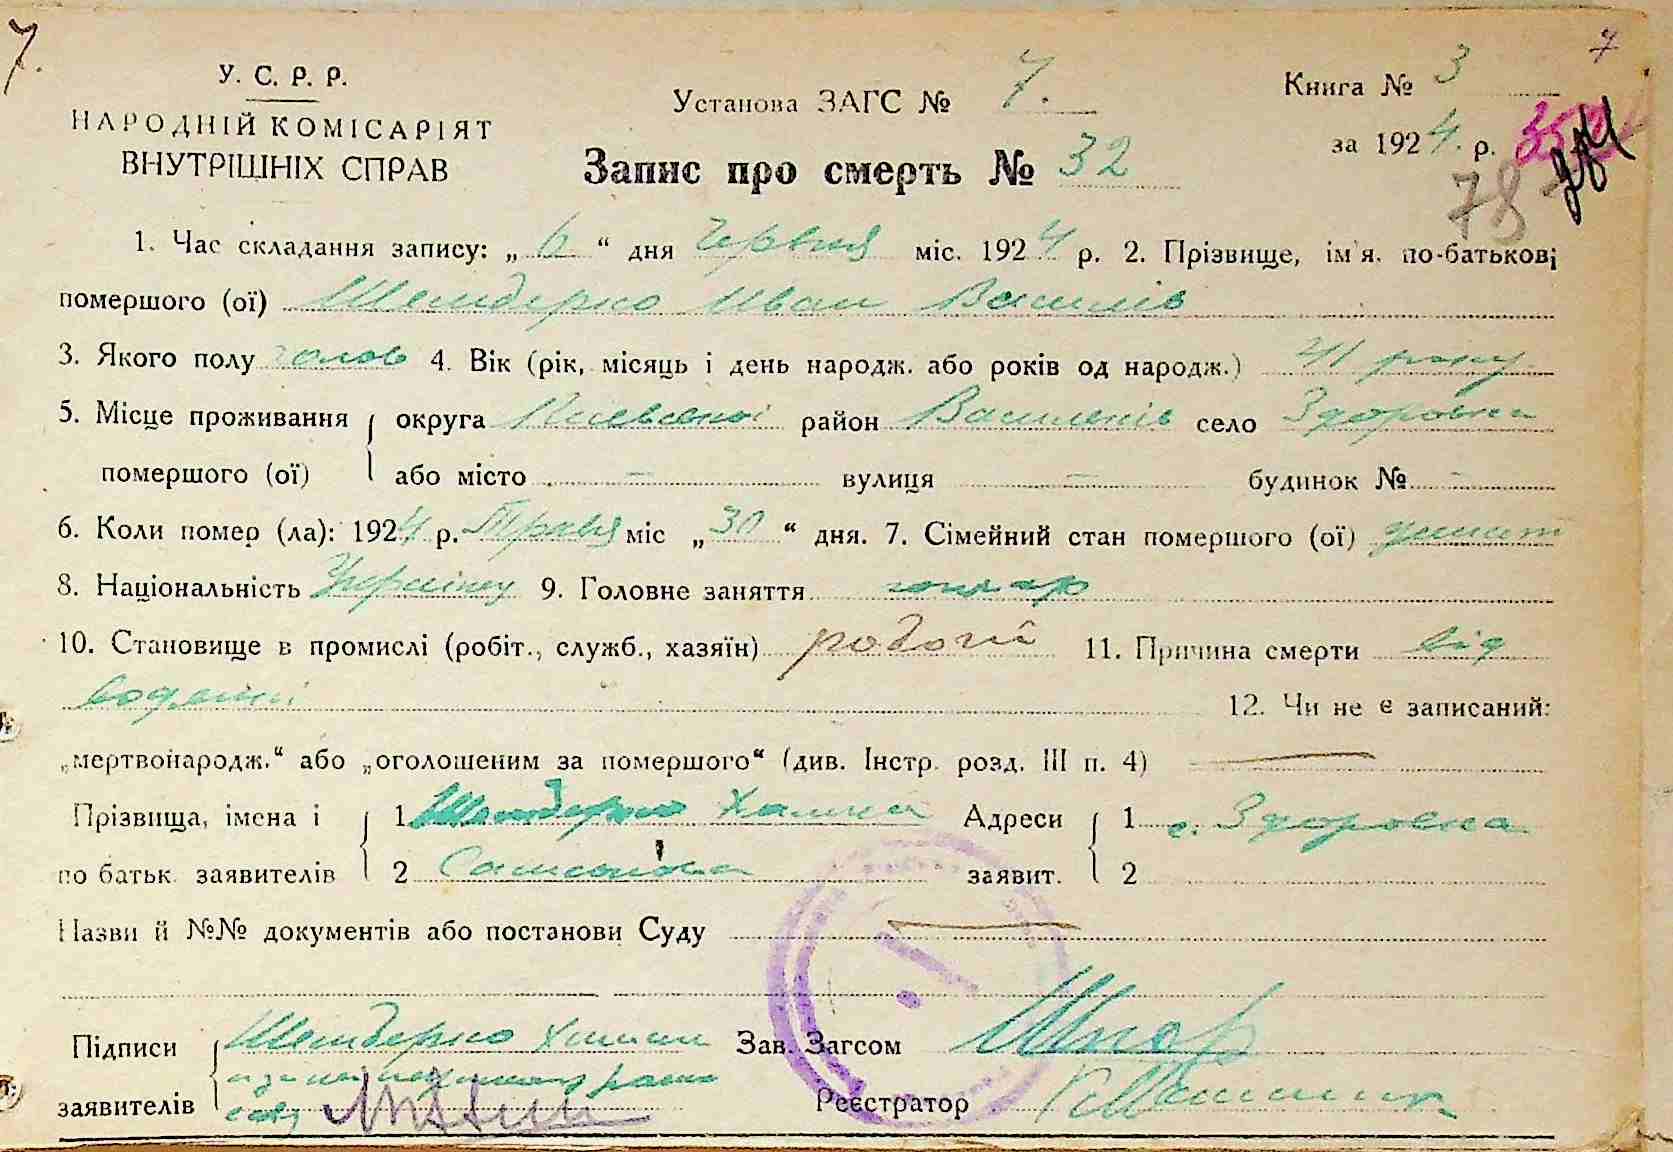 7.
7
У. С. Р. Р.
НАРОДНІЙ КОМІСАРІЯТ
ВНУТРІШНІХ СПРАВ
Установа ЗАГС № 7.
Книга № 3
за 1924 р.
78
Запис про смерть № 32
1. Час складання запису: „ 6 “ дня Червня міс. 1924 р. 2. Прізвище, ім'я, по-батькові
помершого (ої) Шендерко Иван Василів
3. Якого полу чолов 4. Вік (рік, місяць і день народж. або років од народж.) 41 року
5. Місце проживання округа Киевської район Василків село Здоровка
помершого (ої) або місто – вулиця – будинок № –
6. Коли помер (ла): 1924 р. Травня міс „ 30 “ дня. 7. Сімейний стан помершого (ої)
8. Національність 9. Головне заняття гончар
10. Становище в промислі (робіт., служб., хазяїн) робочій 11. Причина смерти від
водянки 12. Чи не є записаний:
„мертвонародж.“ або „оголошеним за помершого“ (див. Інстр. розд. III п. 4) —
Прізвища, імена і 1 Шендерко Адреси 1 с. Здоровка
по батьк. заявителів 2 заявит. 2
Назви й №№ документів або постанови Суду —
Підписи Шендерко Зав. Загсом
заявителів Реєстратор